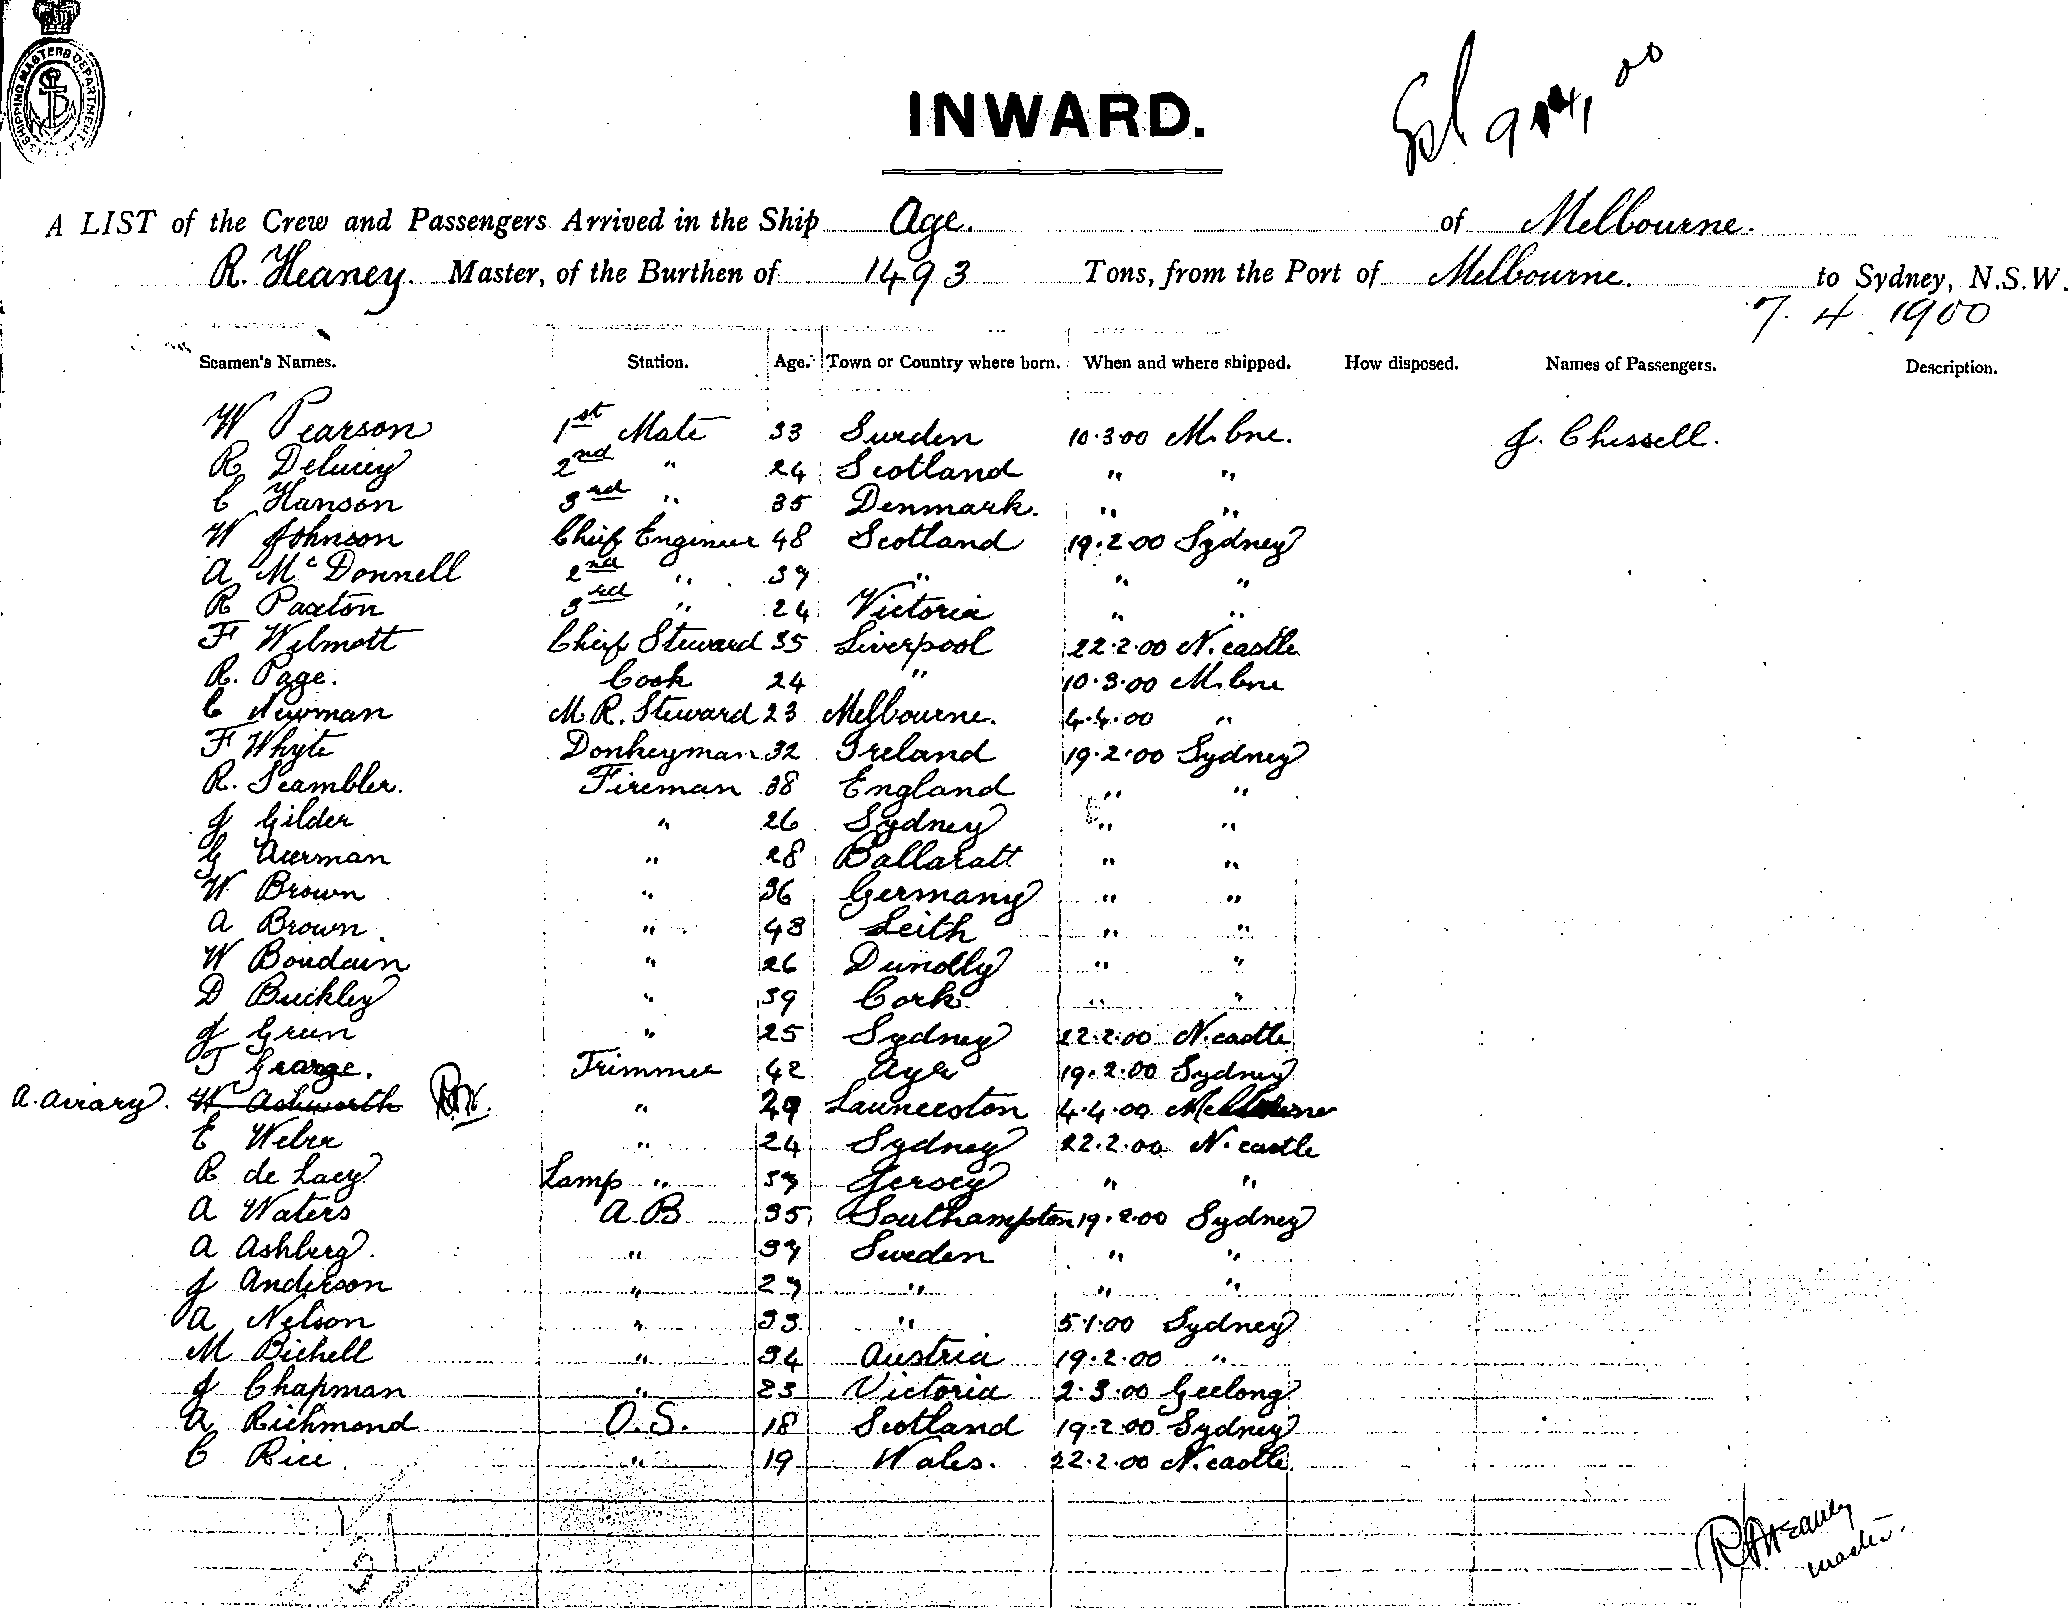 SHIPPING MASTERS DEPARTMENT
INWARD.
A LIST of the Crew and Passengers Arrived in the Ship Age. of Melbourne.
R. Heaney. Master, of the Burthen of 1493 Tons, from the Port of Melbourne. to Sydney, N.S.W.
7. 4. 1900
Seamen's Names. Station. Age. Town or Country where born. When and where shipped. How disposed. Names of Passengers. Description.
W Pearson 1st Mate 33 Sweden 10.3.00 M.bne. J. Chessell.
R 2nd " 24 Scotland " "
C Hanson 3rd " 35 Denmark. " "
W Johnson Chief Engineer 48 Scotland 19.2.00 Sydney
A McDonnell 2nd " 37 " " "
R Paxton 3rd " 24 Victoria " "
F Wilmott Chief Steward 35 Liverpool 22.2.00 N.castle
R. Page. Cook 24 " 10.3.00 M.bne
C Newman M.R. Steward 23 Melbourne. 4.4.00 "
F Whyte Donkeyman 32 Ireland 19.2.00 Sydney
R. Scambler. Fireman 38 England " "
J Gilder " 26 Sydney " "
G " 28 Ballaratt " "
W Brown " 36 Germany " "
A Brown. " 43 Leith " "
W " 26 Dunolly " "
D Buckley " 39 Cork " "
J Green " 25 Sydney 22.2.00 N.castle
T George. Trimmer 42 Ayr 19.2.00 Sydney
A. Aviary. W Ashworth " 29 Launceston 4.4.00 Melbourne
E Weber " 24 Sydney 22.2.00 N.castle
R de Lacy Lamp " 37 Jersey " "
A Waters A B 35 Southampton 19.2.00 Sydney
A Ashberg. " 37 Sweden " "
J Anderson " 27 " " "
A Nelson " 33 " 5.1.00 Sydney
M Bichell " 34 Austria 19.2.00 "
J Chapman " 23 Victoria 2.3.00 Geelong
A Richmond O.S. 18 Scotland 19.2.00 Sydney
C Rice. " 19 Wales. 22.2.00 N.castle
R Heaney
master.